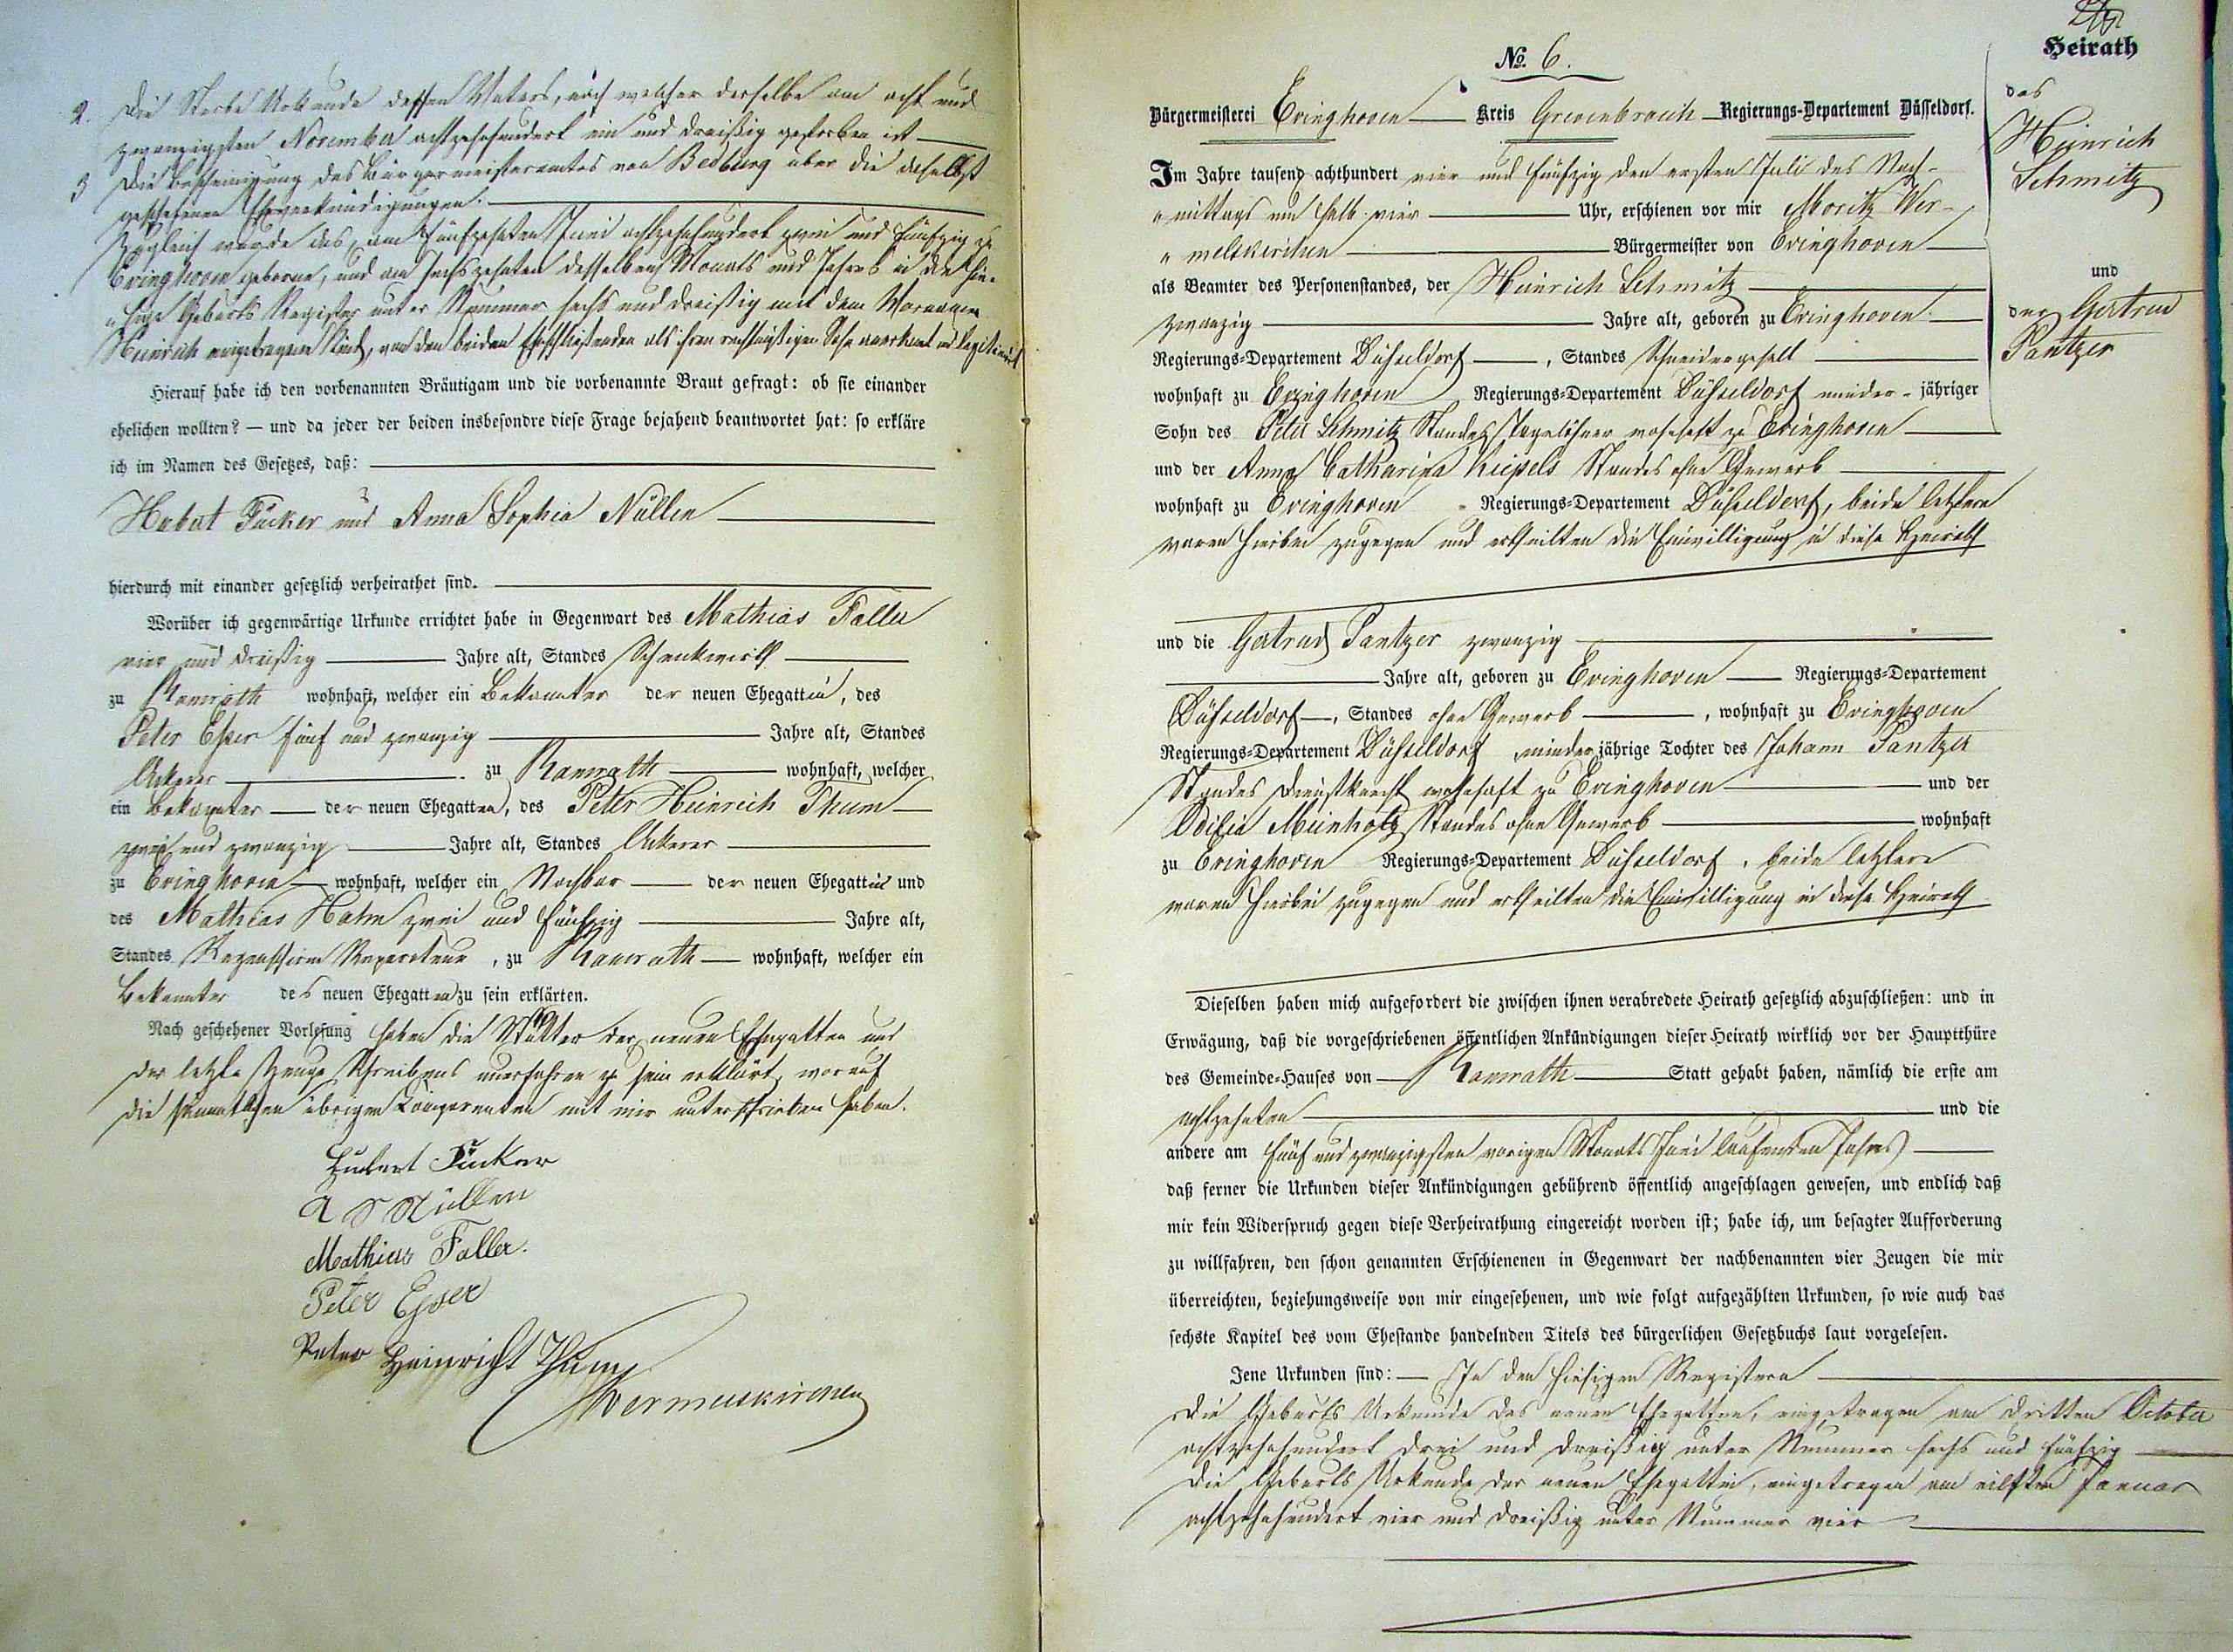 2. Die Sterbe Urkunde dessen Vaters, nach welcher derselbe am acht und
zwanzigsten November achtzehnhundert ein und dreißig gestorben ist
3 Die Bescheinigung des Bürgermeisteramtes von Bedburg über die daselbst
geschehenen Eheverkündigungen.
Zugleich wurde das, am fünfzehnten Juni achtzehnhundert zwei und fünfzig zu
Evinghoven geborene, und am sechszehnten desselben Monats und Jahres in die hie-
"sige Geburts Register unter Nummer sechs und dreißig mit dem Vornamen
Heinrich eingetragene Kind, von den beiden Eheschließenden als ihren rechtmäßigen Sohn anerkannt und legitimirt
Hierauf habe ich den vorbenannten Bräutigam und die vorbenannte Braut gefragt: ob sie einander
ehelichen wollten? — und da jeder der beiden insbesondre diese Frage bejahend beantwortet hat: so erkläre
ich im Namen des Gesetzes, daß:
Hubert Fücker und Anna Sophia Nüllen
hierdurch mit einander gesetzlich verheirathet sind.
Worüber ich gegenwärtige Urkunde errichtet habe in Gegenwart des Mathias Faller
vier und dreißig Jahre alt, Standes Schenkwirth
zu Ramrath wohnhaft, welcher ein Bekannter der neuen Ehegattin, des
Peter Esser fünf und zwanzig Jahre alt, Standes
Ackerer zu Ramrath wohnhaft, welcher
ein Bekannter der neuen Ehegatten, des Peter Heinrich Thum
zwei und zwanzig Jahre alt, Standes Ackerer
zu Evinghoven wohnhaft, welcher ein Nachbar der neuen Ehegattin und
des Mathias Hahn zwei und fünfzig Jahre alt,
Standes Regenschirm Reparateur, zu Ramrath wohnhaft, welcher ein
Bekannter des neuen Ehegatten zu sein erklärten.
Nach geschehener Vorlesung haben die Mutter der neuen Ehegatten und
der letzte Zeuge Schreibens unerfahren zu sein erklärt, worauf
die sämmtlichen übrigen Komparenten mit mir unterschrieben haben.
Hubert Fücker
A S Nüllen
Mathias Faller.
Peter Esser
Peter Heinrich Thum
Wermelskirchen
Heirath
des
Heinrich
Schmitz
und
der Gertrud
Pantzer
No. 6.
Bürgermeisterei Evinghoven Kreis Grevenbroich Regierungs-Departement Düsseldorf.
Im Jahre tausend achthundert vier und fünfzig den ersten Juli des Nach-
"mittags um halb vier Uhr, erschienen vor mir Moritz Wer-
"melskirchen Bürgermeister von Evinghoven
als Beamter des Personenstandes, der Heinrich Schmitz
zwanzig Jahre alt, geboren zu Evinghoven
Regierungs-Departement Düsseldorf, Standes Schneidergesell
wohnhaft zu Evinghoven Regierungs-Departement Düsseldorf minder-jähriger
Sohn des Peter Schmitz Standes Tagelöhner wohnhaft zu Evinghoven
und der Anna CatharinaKüpels Standes ohne Gewerb
wohnhaft zu Evinghoven Regierungs-Departement Düsseldorf, beide letztere
waren hierbei zugegen und ertheilten die Einwilligung in diese Heirath
und die Gertrud Pantzer zwanzig
Jahre alt, geboren zu Evinghoven Regierungs-Departement
Düsseldorf, Standes ohne Gewerb, wohnhaft zu Evinghoven
Regierungs-Departement Düsseldorf minderjährige Tochter des Johann Pantzer
Standes Dienstknecht wohnhaft zu Evinghoven und der
Odilia Meinholz Standes ohne Gewerb wohnhaft
zu Evinghoven Regierungs-Departement Düsseldorf, beide letztere
waren hierbei zugegen und ertheilten die Einwilligung in diese Heirath
Dieselben haben mich aufgefordert die zwischen ihnen verabredete Heirath gesetzlich abzuschließen: und in
Erwägung, daß die vorgeschriebenen öffentlichen Ankündigungen dieser Heirath wirklich vor der Hauptthüre
des Gemeinde-Hauses von Ramrath Statt gehabt haben, nämlich die erste am
achtzehnten und die
andere am fünf und zwanzigsten vorigen Monats Juni laufenden Jahres
daß ferner die Urkunden dieser Ankündigungen gebührend öffentlich angeschlagen gewesen, und endlich daß
mir kein Widerspruch gegen diese Verheirathung eingereicht worden ist; habe ich, um besagter Aufforderung
zu willfahren, den schon genannten Erschienenen in Gegenwart der nachbenannten vier Zeugen die mir
überreichten, beziehungsweise von mir eingesehenen, und wie folgt aufgezählten Urkunden, so wie auch das
sechste Kapitel des vom Ehestande handelnden Titels des bürgerlichen Gesetzbuchs laut vorgelesen.
Jene Urkunden sind: In den hiesigen Registern
Die Geburts Urkunde des neuen Ehegatten, eingetragen am dritten October
achtzehnhundert drei und dreißig unter Nummer sechs und fünfzig
Die Geburts Urkunde der neuen Ehegattin, eingetragen am eilften Januar
achtzehnhundert vier und dreißig unter Nummer vier